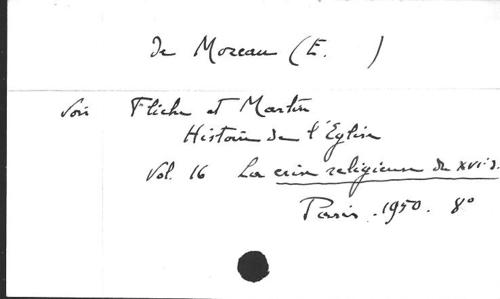 de Moreau (E. )
Voir Fliche et Martin
Histoire de l'Eglise
Vol. 16 La crise religieuse du XVIe s.
Paris . 1950 . 8°